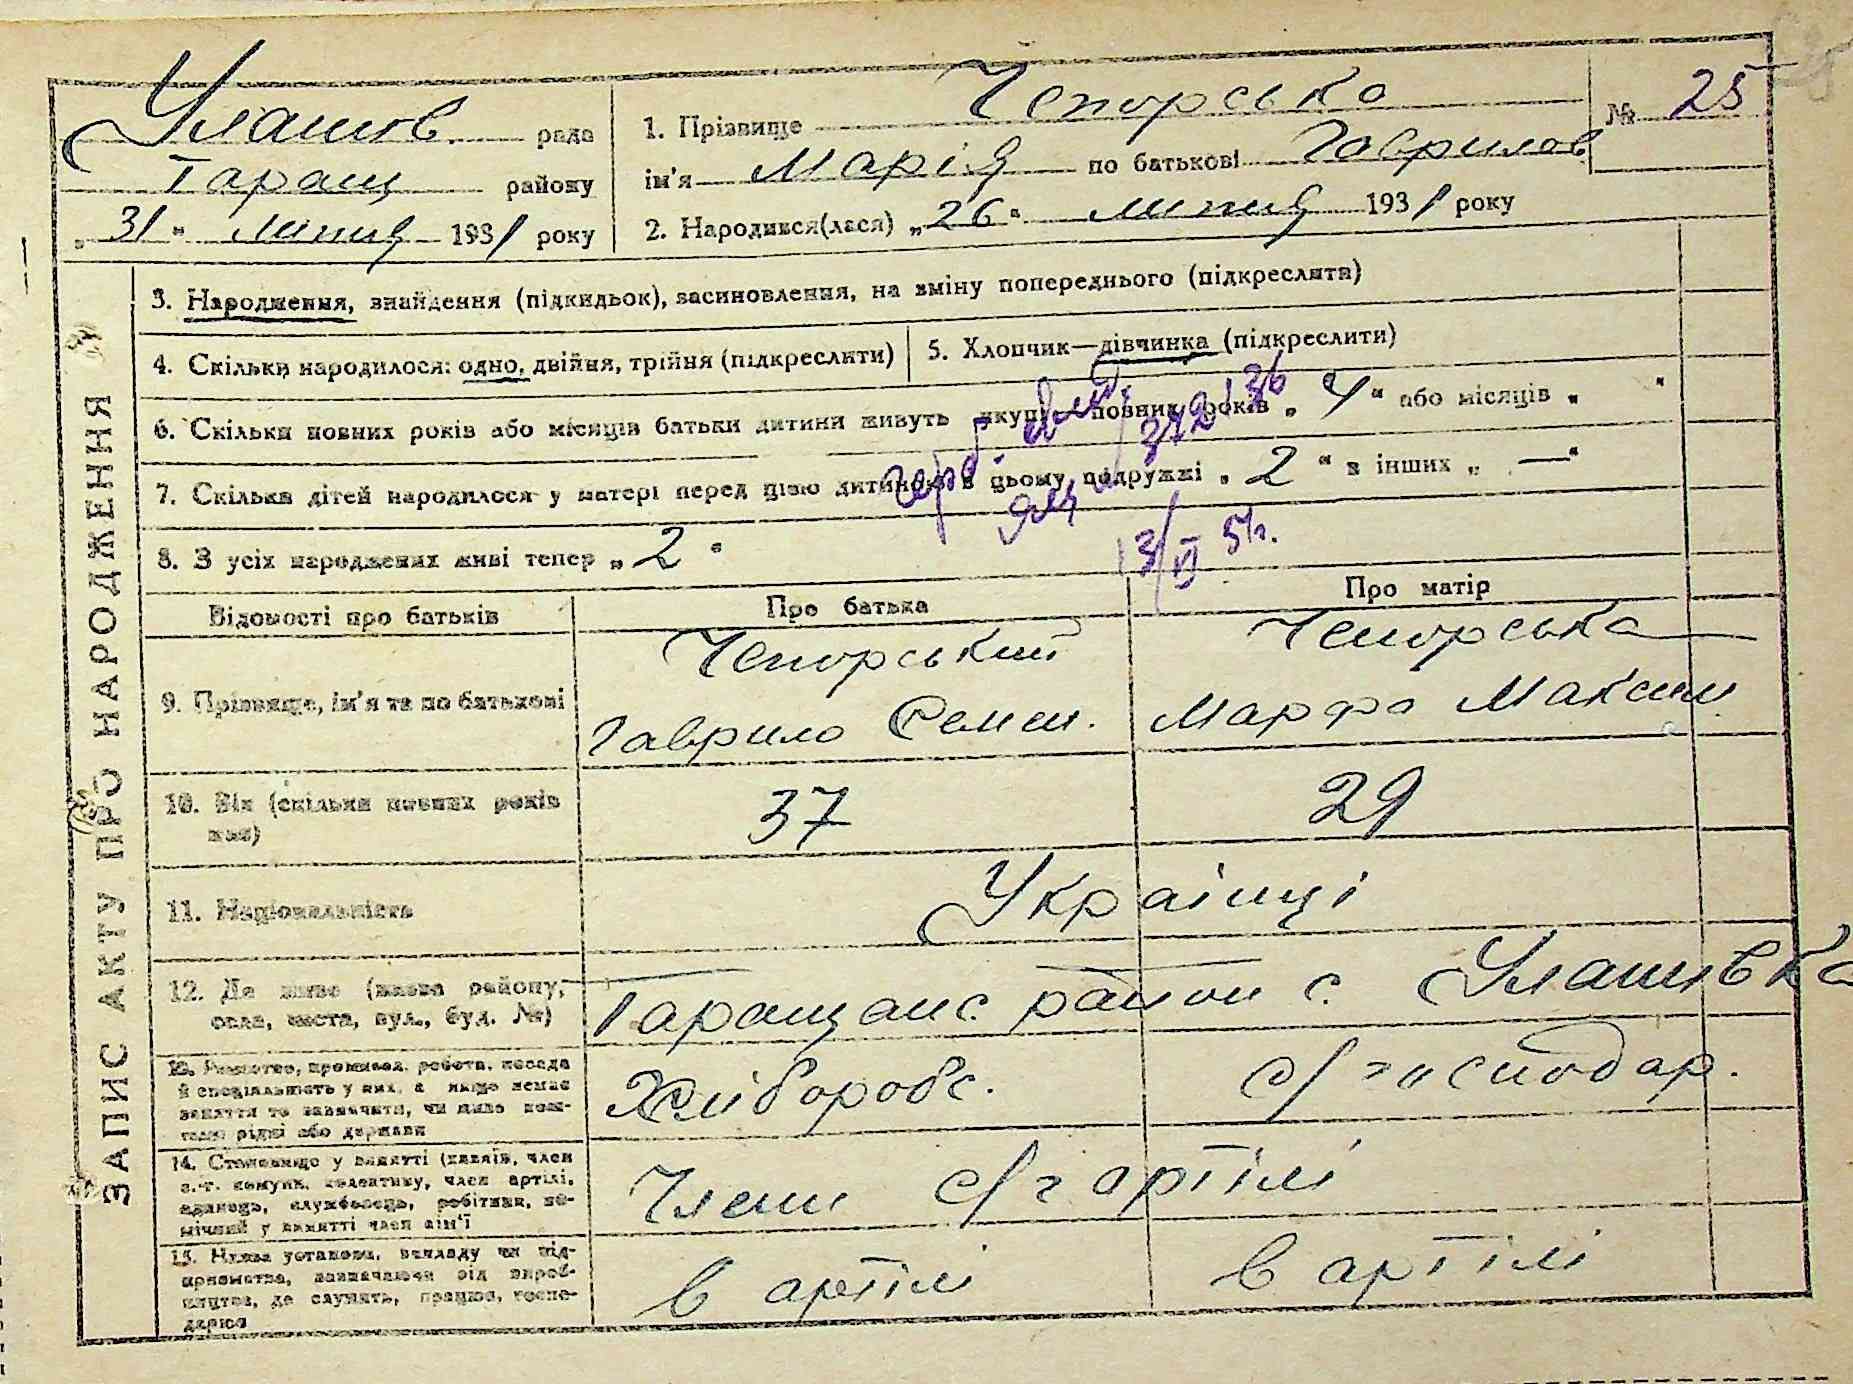 Улашів. рада
Таращ району
„31" липня 1931 року
1. Прізвище Чепорсько
ім'я Марія по батькові Гаврилов
№ 25
2. Народився(лася) „26" липня 1931 року
ЗАПИС АКТУ ПРО НАРОДЖЕННЯ
3. Народження, знайдення (підкидьок), засиновлення, на зміну попереднього (підкреслити)
4. Скільки народилося: одно, двійня, трійня (підкреслити)
5. Хлопчик—дівчинка (підкреслити)
6. Скільки повних років або місяців батьки дитини живуть вкупі повних років „4" або місяців „ "
7. Скільки дітей народилося у матері перед цією дитиною в цьому подружжі „2" в інших „—"
13/VI 51г.
8. З усіх народжених живі тепер „2"
Відомості про батьків Про батька Про матір
9. Прізвище, ім'я та по батькові
Чепорський
Гаврило Семен.
Чепорська
Марфа Максим
10. Вік (скільки повних років
має)
37
29
11. Національність
Українці
12. Де живе (назва району,
села, міста, вул., буд. №)
Таращанс. район с. Улашівка
13. Ремество, промисел, робота, посада
й спеціальність у них, а якщо немає
заняття то зазначити, чи живе кош-
тами рідні або держави
Хліборобс.
с/господар.
14. Становище у занятті (хазяїн, член
с.-г. комуни, колективу, член артілі,
одинець, службовець, робітник, по-
мічний у занятті член сім'ї
Члени с/г артілі
15. Назва установи, закладу чи під-
приємства, зазначаючи рід вироб-
ництва, де служить, працює, госпо-
дарює
в артілі
в артілі